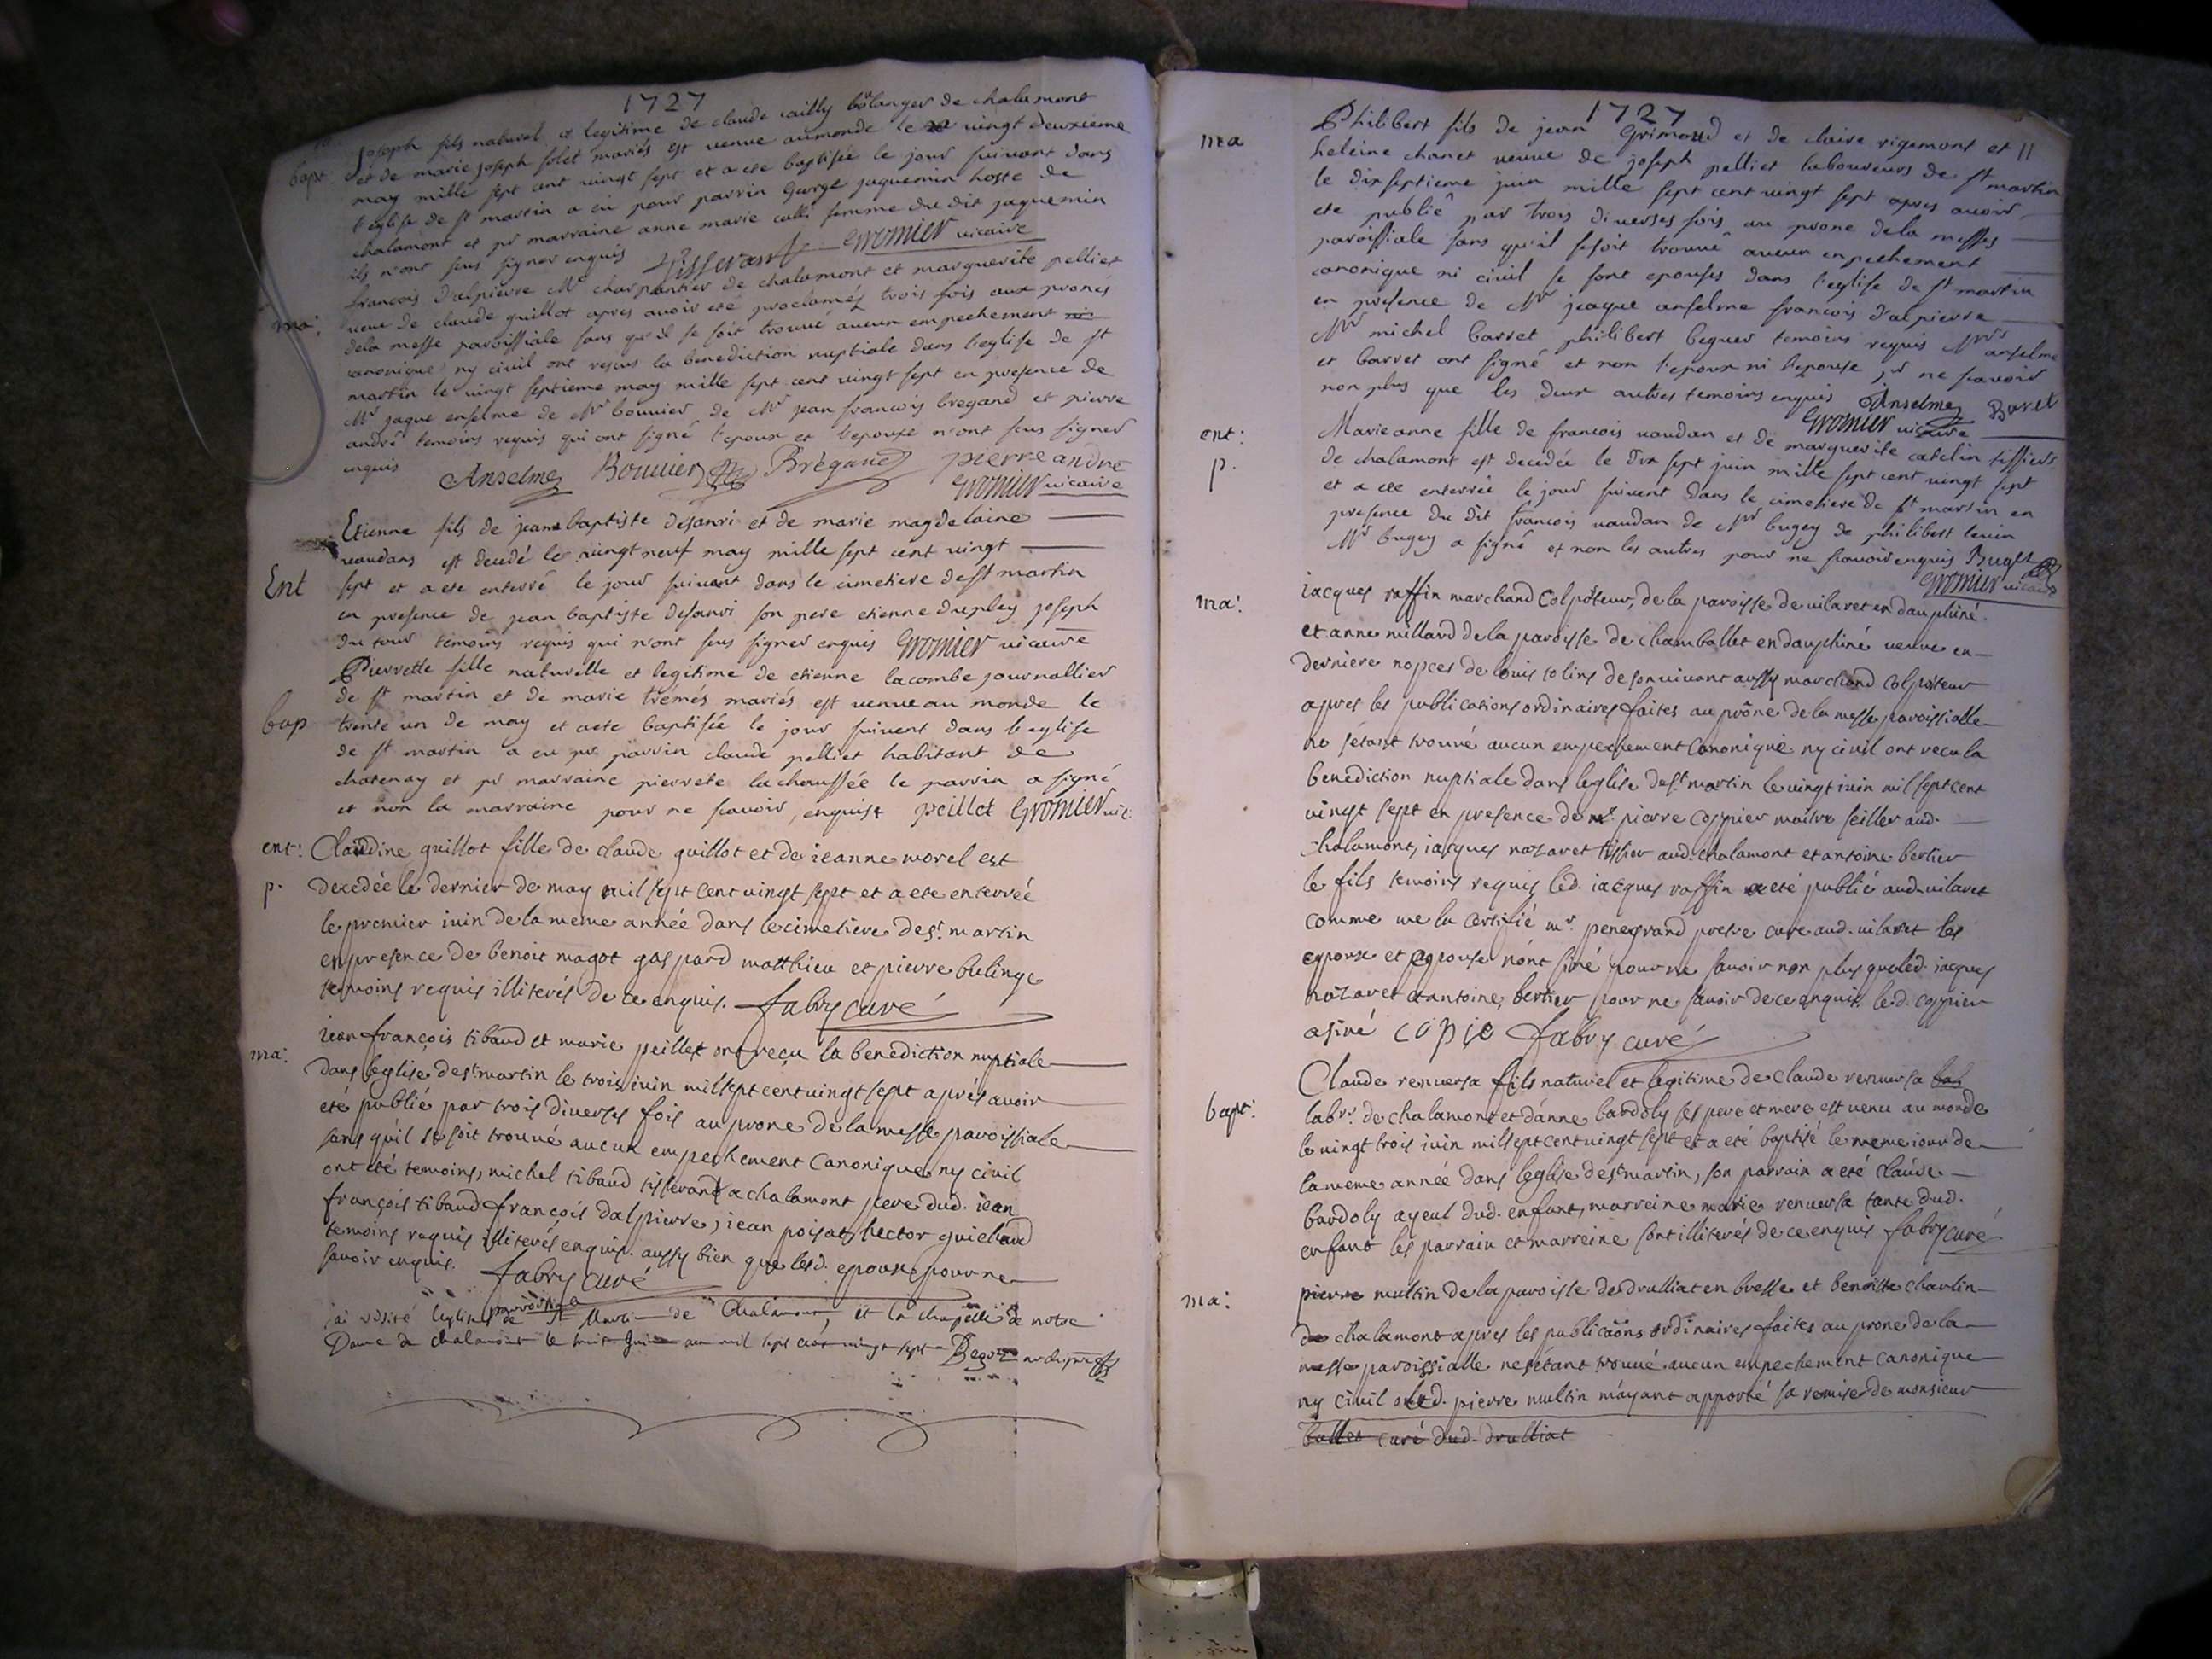 1727
bapt. joseph fils naturel et legitime de claude cailly bolanger de chalamont
et de marie joseph folet mariés est venue aumonde le vingt deuxieme
may mille sept cent vingt sept et a ete baptisée le jour suivant dans
l'eglise de st martin a eu pour parrin george jaquemin hoste de
chalamont et pr marraine anne marie femme du dit jaquemin
ils n'ont sçus signer enquis Gromier vicaire
ma: francois dalpierre Me charpantier de chalamont et marguerite pelliet
veuve de claude guillot apres avoir eté proclamés trois fois aux prones
dela messe paroissiale sans qu'il se soit trouvé aucun empechement
canonique ny civil ont reçus la benediction nuptiale dans l'eglise de st
martin le vingt septieme may mille sept cent vingt sept en presence de
Mr jaque enselme de Mr bouvier de Mr jean francois bregand et pierre
andré temoins requis qui ont signé l'epoux et l'epouse n'ont sçus signer
enquis Anselme Bouvier Brégand pierre andré
Gromier vicaire
Etienne fils de jean baptiste desanvi et de marie magdelaine
vaudans est decedé le vingt neuf may mille sept cent vingt
Ent sept et a ete enterré le jour suivant dans le cimetiere de st martin
en presence de jean baptiste desanvi son pere etienne dupley joseph
du tour temoins requis qui n'ont sçus signer enquis Gromier vicaire
Pierrette fille naturelle et legitime de etienne lacombe journallier
de st martin et de marie trémés mariés est venue au monde le
bap trente un de may et a ete baptisée le jour suivent dans l'eglise
de st martin a eu pr parrin claude pelliet habitant de
chatenay et pr marraine pierrete lachaussée le parrin a signé
et non la marraine pour ne scavoir, enquise peillet Gromier vic:
ent: Claudine guillot fille de claude guillot et de ieanne morel est
p. decedée le dernier de may mil sept cent vingt sept et a ete enterreé
le premier iuin de la meme année dans le cimetiere de st. martin
en presence de benoit magot gaspard matthieu et pierre belinge
temoins requis illiterés de ce enquis. fabry curé
ma: iean françois tibaud et marie peillet ont reçu la benediction nuptiale
dans leglise de st martin le trois iuin mil sept cent vingt sept aprés avoir
eté publié par trois diverses fois au prone de la messe paroissiale
sans qu'il se soit trouvé aucun empechement canonique ny civil
ont eté temoins, michel tibaud tisserand a chalamont pere dud. iean
françois tibaud françois dalpierre, iean poisat, hector guichard
temoins requis illiterés enquis. aussy bien que lesd. epoux pour ne
savoir enquis. fabry curé
jai visité leglise parroissiale de St Martin de Chalamont, et la chapelle de notre
Dame de chalamont le huit Juin mil sept cent vingt sept archiprestre
1727
11
ma Philibert fils de jean Grimoud et de claire rigemont et
heleine chanet veuve de joseph pelliet laboureurs de st martin
le dixseptieme juin mille sept cent vingt sept apres avoir
ete publié par trois diverses fois au prone dela messes
paroissiale sans qu'il se soit trouvé aucun enpechement
canonique ni civil se sont epousés dans l'eglise de st martin
en presence de Mr jeaque anselme francois d'alpierre
Mr michel barret philibert beguer temoins requis Mrs anselme
et barret ont signé et non l'epoux ni l'epouse pr ne scavoir
non plus que les deux autres temoins enquis Anselme Baret
Gromier vicaire
ent: Marie anne fille de francois vaudan et de marguerite catelin tissiers
p. de chalamont est decedée le dix sept juin mille sept cent vingt sept
et a ete enterrée le jour suivent dans le cimetiere de st martin en
presence du dit francois vaudan de Mr bugey de philibert
Mr bugey a signé et non les autres pour ne scavoir enquis Bugey
Gromier vicaire
ma: iacques raffin marchand Colporteur, de la paroisse de vilaret en dauphiné
et anne millard de la paroisse de chamballet en dauphiné veuve en
derniere nopces de louis tolins de son vivant aussy marchand Colporteur
apres les publications ordinaires faites au prône de la messe paroissialle
ne s'etant trouvé aucun empechement Canonique ny civil ont recu la
benediction nuptiale dans leglise de st. martin le vingt iuin mil sept cent
vingt sept en presence de mr. pierre Coppier maitre seillier aud.
chalamont, iacques nazaret tissier aud. chalamont et antoine bertier
le fils temoins requis led. iacques raffin a eté publié aud. vilaret
comme me la certifié mr penegrand prestre curé aud. vilaret les
epoux et epouse n'ont siné pour ne savoir non plus que led. iacques
nazaret et antoine bertier pour ne savoir de ce enquis led. coppier
a siné copie fabry curé
Claude renversa fils naturel et legitime de Claude renversa
bapt: labr. de chalamont et d'anne bardoly ses pere et mere est venu au monde
le vingt trois iuin mil sept cent vingt sept et a eté baptisé le meme iour de
la meme année dans leglise de st martin, son parrain a eté claude
bardoly ayeul dud. enfant, marreine marie renversa tante dud.
enfant les parrain et marreine sont illiterés de ce enquis fabry curé
ma: pierre multin de la paroisse de drulliat en bresse et benoitte charlin
de chalamont apres les publicaõns ordinaires faites au prone de la
messe paroissialle ne s'étant trouvé aucun empechement canonique
ny civil led. pierre multin m'ayant apporté sa remise de monsieur
curé dud. drulliat